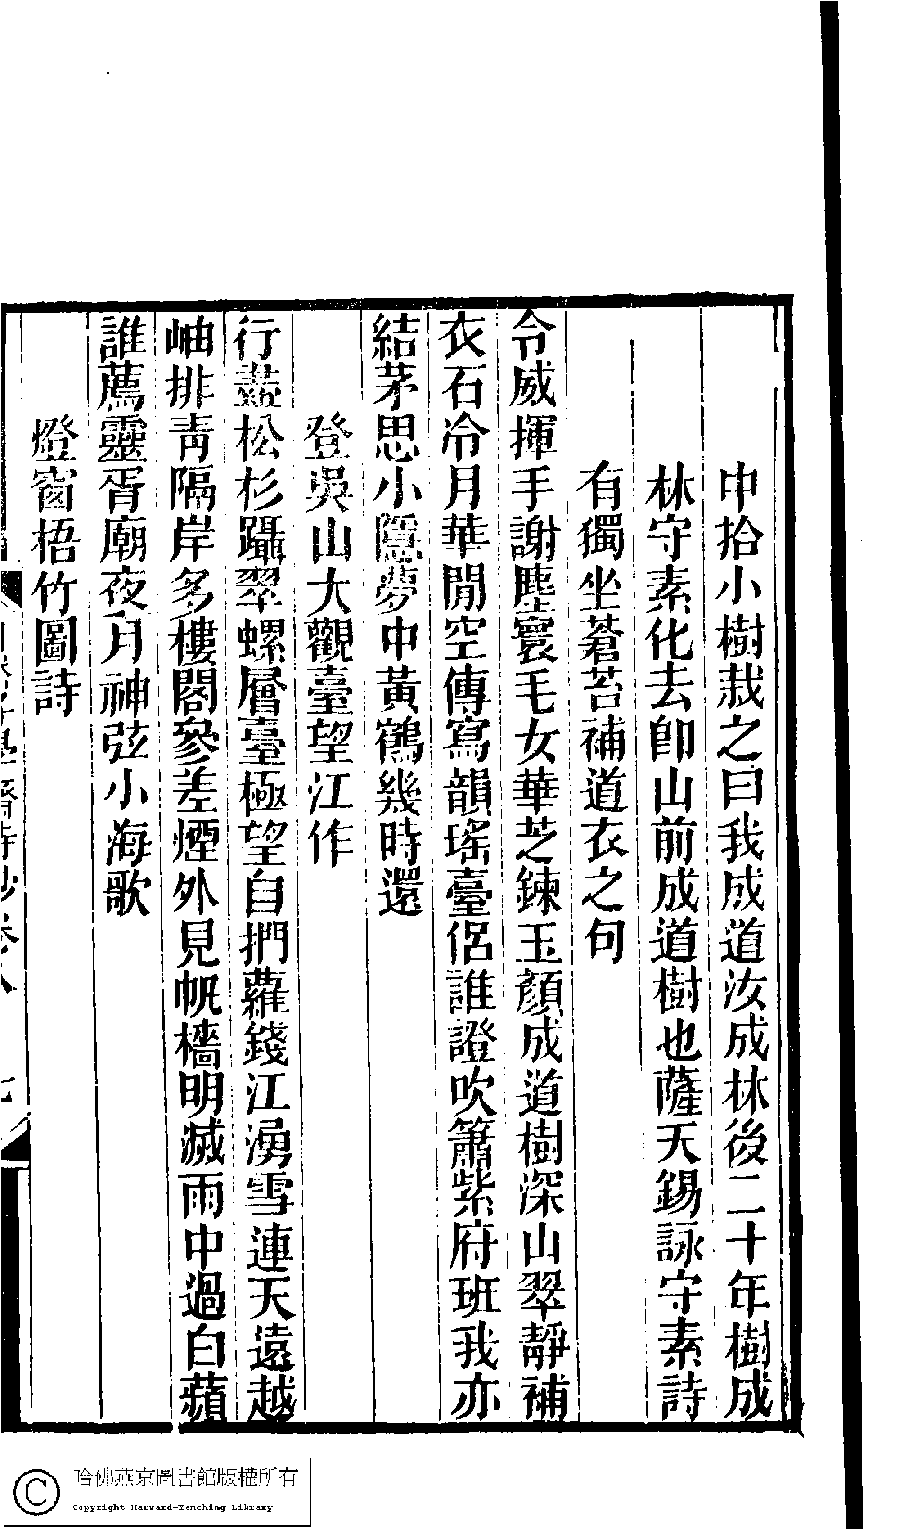 中拾小樹栽之曰我成道汝成林後二十年樹成
林守素化去卽山前成道樹也薩天錫詠守素詩
有獨坐蒼苔補道衣之句
令威揮手謝塵寰毛女華芝鍊玉顏成道樹深山翠靜補
衣石冷月華閒空傳寫韻瑤臺侶誰證吹簫紫府班我亦
結茅思小隱夢中黃鶴幾時還
登吳山大觀臺望江作
行盡松杉躡翠螺層臺極望自捫蘿錢江湧雪連天遠越
岫排靑隔岸多樓閣參差煙外見帆檣明滅雨中過白蘋
誰薦靈胥廟夜月神弦小海歌
燈窗梧竹圖詩
哈佛燕京圖書館版權所有
Copyright Harvard-Yenching Library